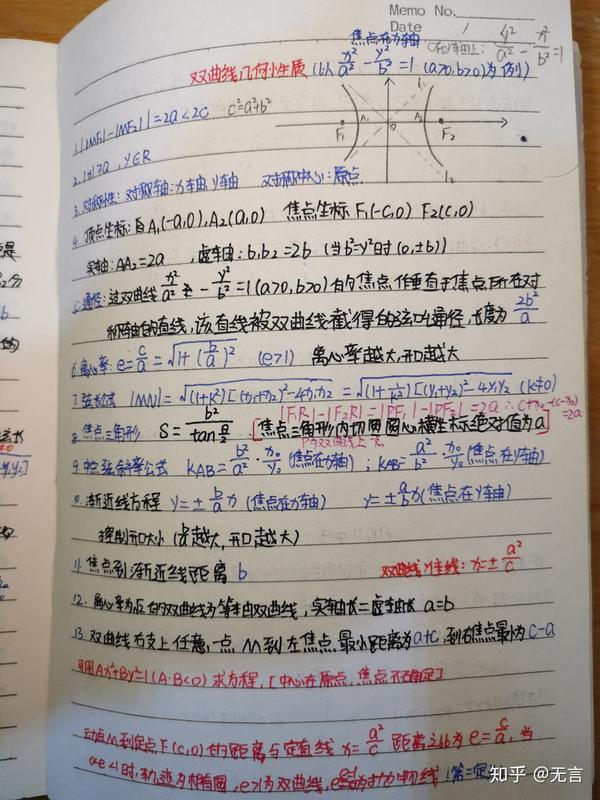 Memo No.
Date /
焦点在x轴
焦点在y轴上: y²/a² - x²/b² = 1
双曲线几何性质 (以 x²/a² - y²/b² = 1 (a>0, b>0)为例)
1. ||MF₁|-|MF₂|| = 2a < 2c c²=a²+b²
F₁ A₁ O A₂ F₂
l₂
2. |x|≥a, y∈R
3. 对称性: 对称轴: x轴, y轴 对称中心: 原点
4. 顶点坐标: A₁(-a,0), A₂(a,0) 焦点坐标 F₁(-c,0) F₂(c,0)
实轴: AA₂=2a , 虚轴: b₁b₂=2b (当b²=y²时(0,±b))
5. 通径: 过双曲线 x²/a² - y²/b² = 1 (a>0, b>0) 的焦点作垂直于焦点所在对
称轴的直线, 该直线被双曲线截得的弦叫通径, 长度为 2b²/a
6. 离心率: e = c/a = √(1+(b/a)²) (e>1) 离心率越大, 开口越大
7. 弦长公式 |MN| = √((1+k²)[(x₁+x₂)²-4x₁x₂]) = √((1+1/k²)[(y₁+y₂)²-4y₁y₂]) (k≠0)
|F₁R|-|F₂R|=|PF₁|-|PF₂|=2a ∴c+x₀-(c-x₀)=2a
8. 焦点三角形 S = b²/tan(θ/2) [焦点三角形内切圆圆心横坐标绝对值为a]
P为双曲线上一点
9. 中点弦斜率公式 k_AB = b²/a² · x₀/y₀ (焦点在x轴) ; k_AB = a²/b² · x₀/y₀ (焦点在y轴)
10. 渐近线方程 y=±b/a x (焦点在x轴) y=±a/b x (焦点在y轴)
控制开口大小 (b/a越大, 开口越大)
11. 焦点到渐近线距离 b 双曲线准线: x=±a²/c
12. 离心率为√2的双曲线为等轴双曲线, 实轴长=虚轴长 a=b
13. 双曲线右支上任意一点M到左焦点最小距离为a+c, 到右焦点最小为c-a
可用Ax²+By²=1 (A·B<0) 求方程, [中心在原点, 焦点不确定]
动点M到定点F(c,0)的距离与定直线 x=a²/c 距离之比为 e=c/a, 当
0<e<1时, 轨迹为椭圆, e>1为双曲线, e=1为抛物线 (第二定义)
知乎 @无言